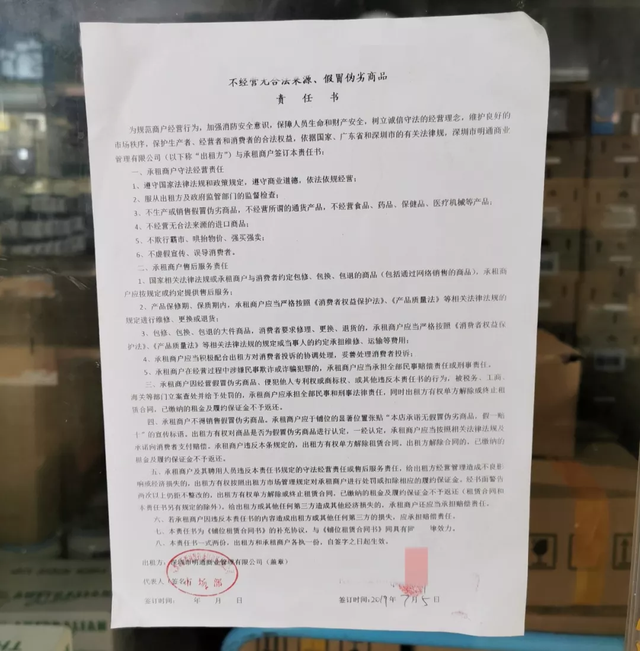 不经营无合法来源、假冒伪劣商品
责 任 书
为规范商户经营行为，加强消防安全意识，保障人员生命和财产安全，树立诚信守法的经营理念，维护良好的
市场秩序，保护生产者、经营者和消费者的合法权益，依据国家、广东省和深圳市的有关法律规，深圳市明通商业
管理有限公司（以下称“出租方”）与承租商户签订本责任书：
一、承租商户守法经营责任
1、遵守国家法律法规和政策规定，遵守商业道德，依法依规经营；
2、服从出租方及政府监管部门的监督检查；
3、不生产或销售假冒伪劣商品，不经营所谓的通货产品，不经营食品、药品、保健品、医疗机械等产品；
4、不经营无合法来源的进口商品；
5、不欺行霸市、哄抬物价、强买强卖；
6、不虚假宣传、误导消费者。
二、承租商户售后服务责任
1、国家相关法律法规或承租商户与消费者约定包修、包换、包退的商品（包括通过网络销售的商品），承租商
户应按规定或约定提供售后服务；
2、产品保修期、保质期内，承租商户应当严格按照《消费者权益保护法》、《产品质量法》等相关法律法规的
规定进行维修、更换或退货；
3、包修、包换、包退的大件商品，消费者要求修理、更换、退货的，承租商户应当严格按照《消费者权益保
护法》、《产品质量法》等相关法律法规的规定或当事人的约定承担维修、运输等费用；
4、承租商户应当积极配合出租方对消费者投诉的协调处理，妥善处理消费者投诉；
5、承租商户在经营过程中涉嫌民事欺诈或诈骗犯罪的，承租商户应当承担全部民事赔偿责任或刑事责任。
三、承租商户因经营假冒伪劣商品、侵犯他人专利权或商标权、或其他违反本责任书的行为，被税务、工商、
海关等部门立案查处并给予处罚的，承租商户应承担全部民事和刑事法律责任，同时出租方有权解除或终止租
赁合同，已缴纳的租金及履约保证金不予返还。
四、承租商户不得销售假冒伪劣商品，承租商户应于铺位的显著位置张贴“本店承诺无假冒伪劣商品，假一赔
十”的宣传标语。出租方有权对商品是否为假冒伪劣商品进行认定，一经认定，承租商户应当按照相关法律法规及
承诺向消费者支付赔偿。承租商户违反本条规定的，出租方有权单方解除租赁合同。出租方解除合同的，已缴纳的
租金及履约保证金不予返还。
五、承租商户及其聘用人员违反本责任书规定的守法经营责任或售后服务责任，给出租方经营管理造成不良影
响或经济损失的，出租方有权按照出租方市场管理规定对承租商户进行处罚或扣除相应的履约保证金。经书面警告
两次以上仍拒不整改的，出租方有权单方解除或终止租赁合同，已缴纳的租金及履约保证金不予返还（租赁合同和
本责任书另有规定的除外）。给出租方或其他任何第三方造成其他经济损失的，承租商户还应当承担赔偿责任。
六、若承租商户因违反本责任书的内容造成出租方或其他任何第三方的损失，应承担赔偿责任。
七、本责任书为《铺位租赁合同书》的补充协议，与《铺位租赁合同书》同具有 等效力。
八、本责任书一式两份，出租方和承租商户各执一份，自签字之日起生效。
出租方：深圳市明通商业管理有限公司（盖章）
代表人（签名）
签订时间： 年 月 日 签订时间：2019年7月5日